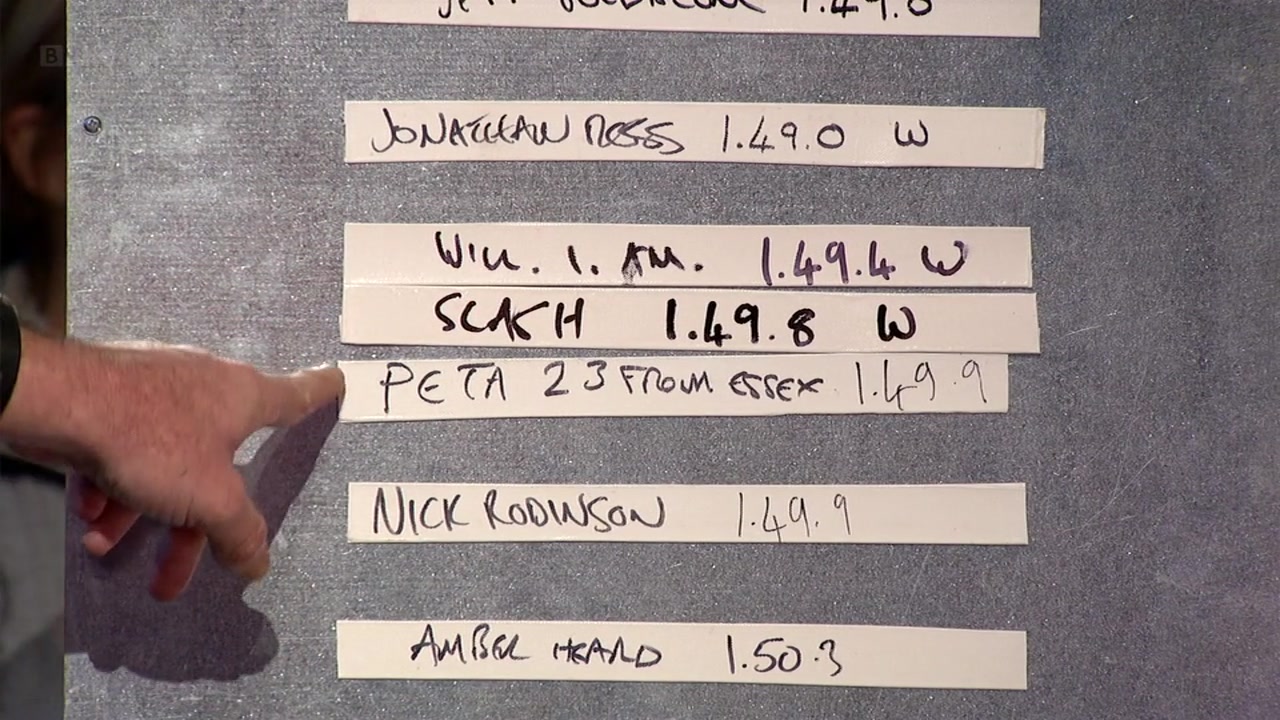 1.49.0
B
JONATHAN ROSS 1.49.0 W
WILL. I. AM. 1.49.4 W
SLASH 1.49.8 W
PETA 23 FROM ESSEX 1.49.9
NICK ROBINSON 1.49.9
AMBER HEARD 1.50.3